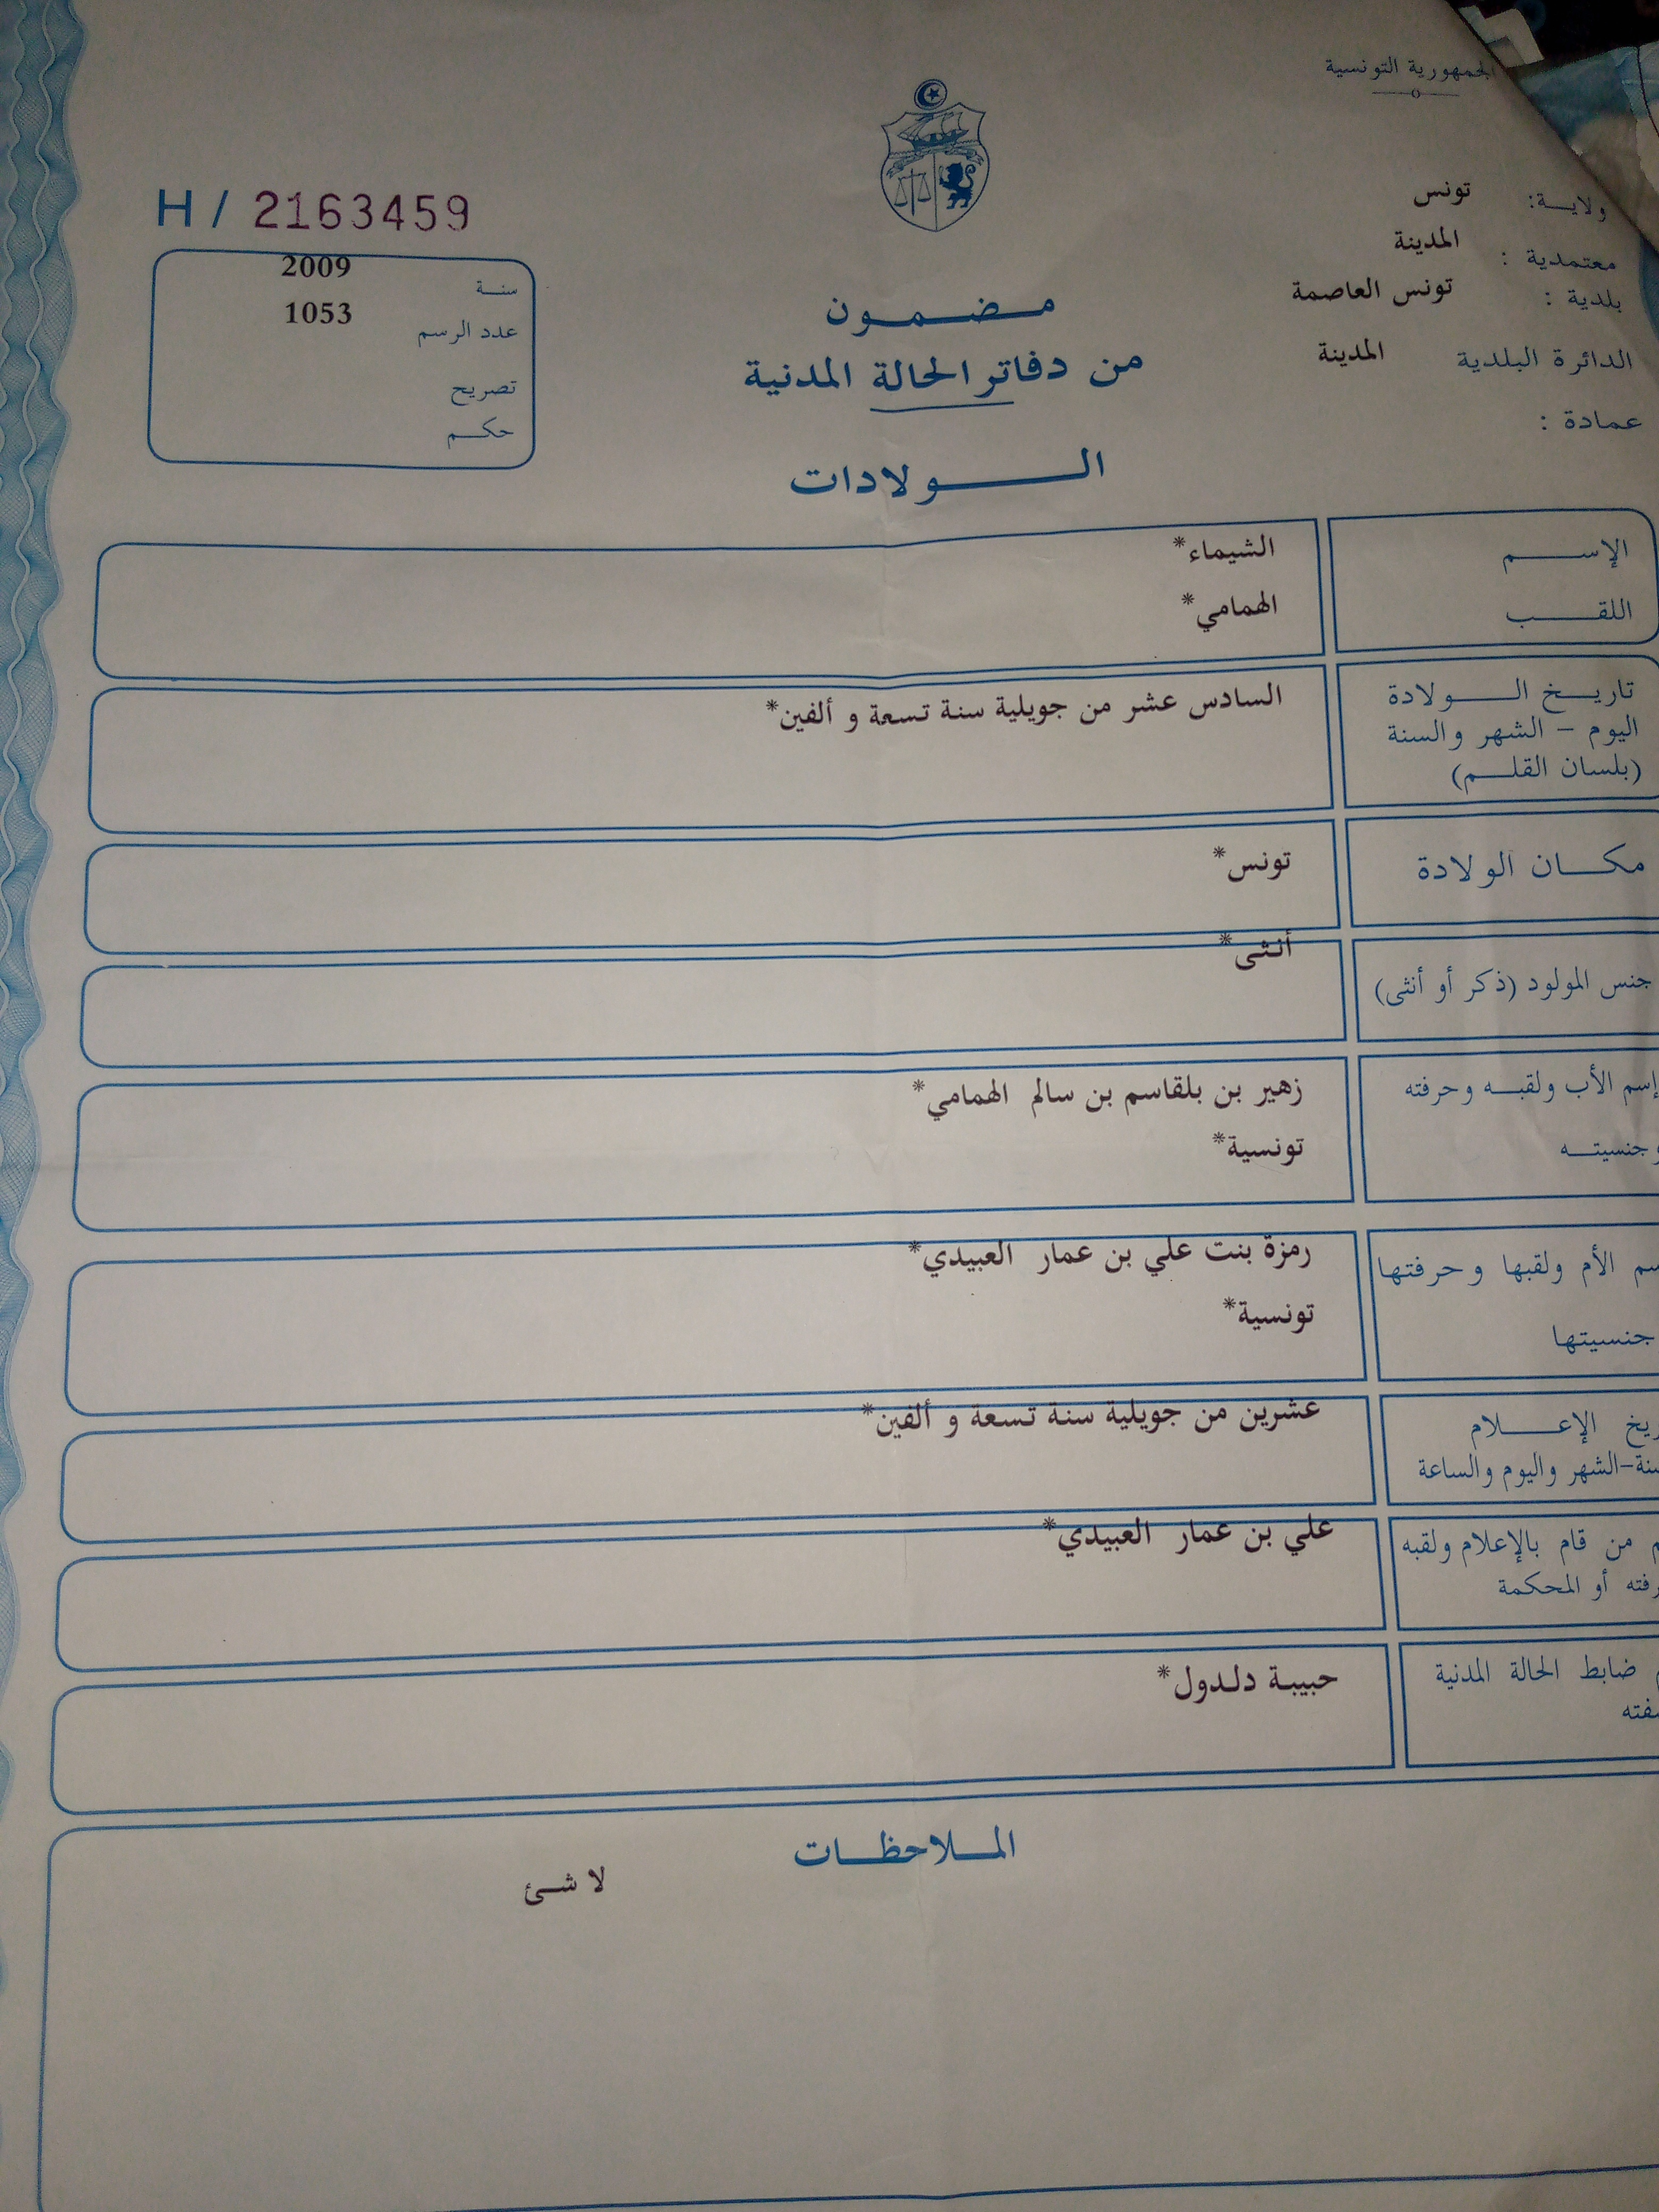 الجمهورية التونسية
ولاية: تونس
معتمدية : المدينة
بلدية : تونس العاصمة
الدائرة البلدية المدينة
عمادة :
H / 2163459
سنة 2009
عدد الرسم 1053
تصريح
حكم
مضمون
من دفاتر الحالة المدنية
الولادات
الإسم الشيماء*
اللقب الهمامي*
تاريخ الولادة السادس عشر من جويلية سنة تسعة و ألفين*
اليوم - الشهر والسنة
(بلسان القلم)
مكان الولادة تونس*
جنس المولود (ذكر أو أنثى) أنثى*
إسم الأب ولقبه وحرفته زهير بن بلقاسم بن سالم الهمامي*
وجنسيته تونسية*
سم الأم ولقبها وحرفتها رمزة بنت علي بن عمار العبيدي*
جنسيتها تونسية*
ريخ الإعلام عشرين من جويلية سنة تسعة و ألفين*
سنة-الشهر واليوم والساعة
م من قام بالإعلام ولقبه علي بن عمار العبيدي*
رفته أو المحكمة
م ضابط الحالة المدنية حبيبة دلدول*
صفته
الملاحظات
لا شئ